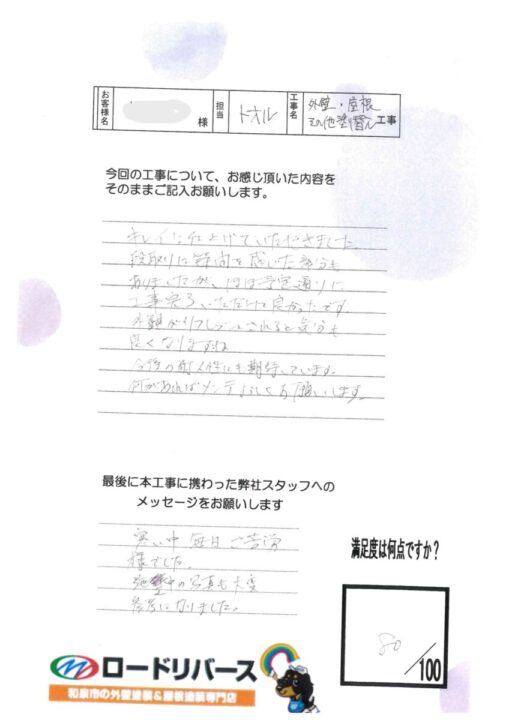 お客様名
様
担当
トオル
工事名
外壁・屋根
その他塗替え工事
今回の工事について、お感じ頂いた内容を
そのままご記入お願いします。
キレイに仕上げていただきました。
段取りに疑問を感じた部分も
ありましたが、ほぼ予定通りに
工事完了いただけて良かったです。
外観がリフレッシュされると気分も
良くなりますね
今後の耐久性にも期待しています。
何かあればメンテよろしくお願いします。
最後に本工事に携わった弊社スタッフへの
メッセージをお願いします
寒い中毎日ご苦労
様でした。
の写真も大変
参考になりました。
満足度は何点ですか？
80/100
ロードリバース
和泉市の外壁塗装&屋根塗装専門店